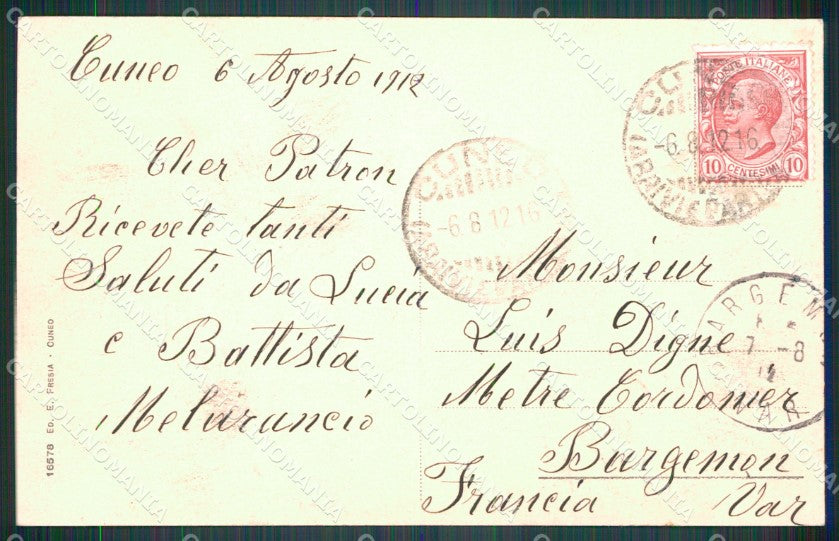 Cuneo 6 Agosto 1912
Cher Patron
Ricevete tanti
Saluti da Lucia
e Battista
Melarancio
Monsieur
Luis Digne
Metre Cordomer
Bargemon
Francia Var
POSTE ITALIANE
10 CENTESIMI 10
CUNEO
-6.8.12 16
CUNEO
-6.8.12 16
BARGEM
7 -8
12
VAR
16578 ED. E. FRESIA - CUNEO
CARTOLINOMANIA